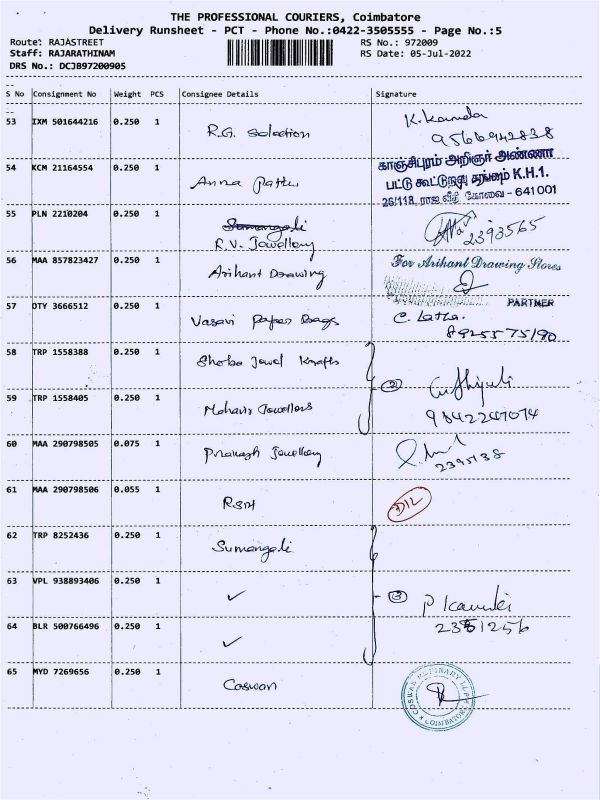 THE PROFESSIONAL COURIERS, Coimbatore
Delivery Runsheet - PCT - Phone No.:0422-3505555 - Page No.:5
Route: RAJASTREET RS No.: 972009
Staff: RAJARATHINAM RS Date: 05-Jul-2022
DRS No.: DCJB97200905
S No Consignment No Weight PCS Consignee Details Signature
53 IXM 501644216 0.250 1 R.G. Selection K. Kamala
9566942838
54 KCM 21164554 0.250 1 Anna Pattu காஞ்சிபுரம் அறிஞர் அண்ணா
பட்டு கூட்டுறவு சங்கம் K.H.1.
26/118, ராஜ வீதி கோவை - 641 001
55 PLN 2210204 0.250 1 Sumangali
R.V. Jewellery 2393565
56 MAA 857823427 0.250 1 Arihant Drawing For Arihant Drawing Stores
PARTNER
57 OTY 3666512 0.250 1 Vasavi Paper Bags C. Latha.
8925575190
58 TRP 1558388 0.250 1 Shoba Jewel Krafts
2
59 TRP 1558405 0.250 1 Mahavir Jewellers 9842247074
60 MAA 290798505 0.075 1 Prakash Jewellery
2395138
61 MAA 290798506 0.055 1 D12
62 TRP 8252436 0.250 1 Sumangali
63 VPL 938893406 0.250 1 ✓ 3
64 BLR 500766496 0.250 1 ✓ 2351256
65 MYD 7269656 0.250 1 Coswan COSWAN REFINARY LLP
COIMBATORE